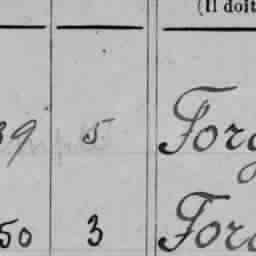 (Il doit
39 5 Forg
50 3 Forg